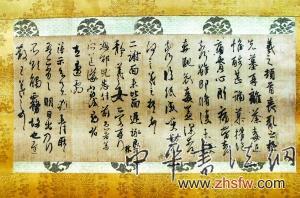 羲之頓首喪亂之極
先墓再離荼毒追
惟酷甚號慕摧絕
痛貫心肝痛當奈何
奈何雖即脩復未獲
奔馳哀毒益深奈何
奈何臨紙感哽不知
何言羲之頓首頓首
二謝面未比面遲詠良不
靜羲之女愛再拜
想邵兒悉佳前患者善
左邊劇
得示知足下猶未佳耿耿
吾亦劣劣明日出乃行
不欲觸霧故也遲散
王羲之頓首
中華書法網
www.zhsfw.com